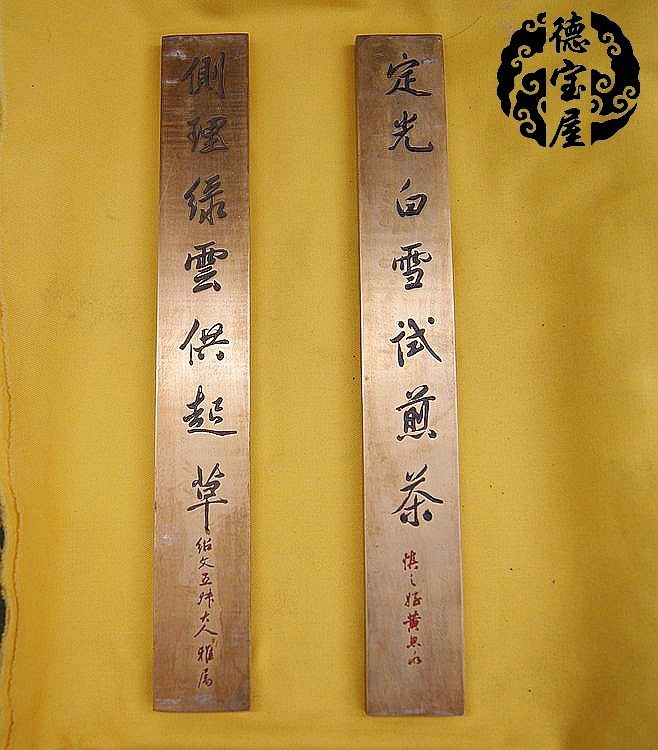 側理緑雲供起草
紹文五大人雅屬
定光白雪試煎茶
慎之黃思永
德宝屋